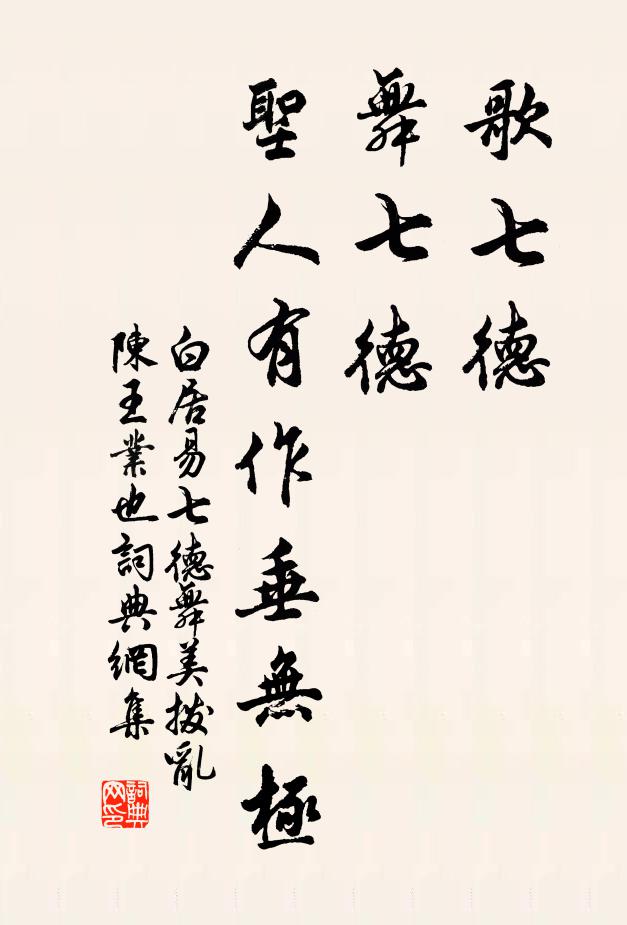 歌七德
舞七德
聖人有作垂無極
白居易七德舞美拔亂
陳王業也詞典網集
詞典網印